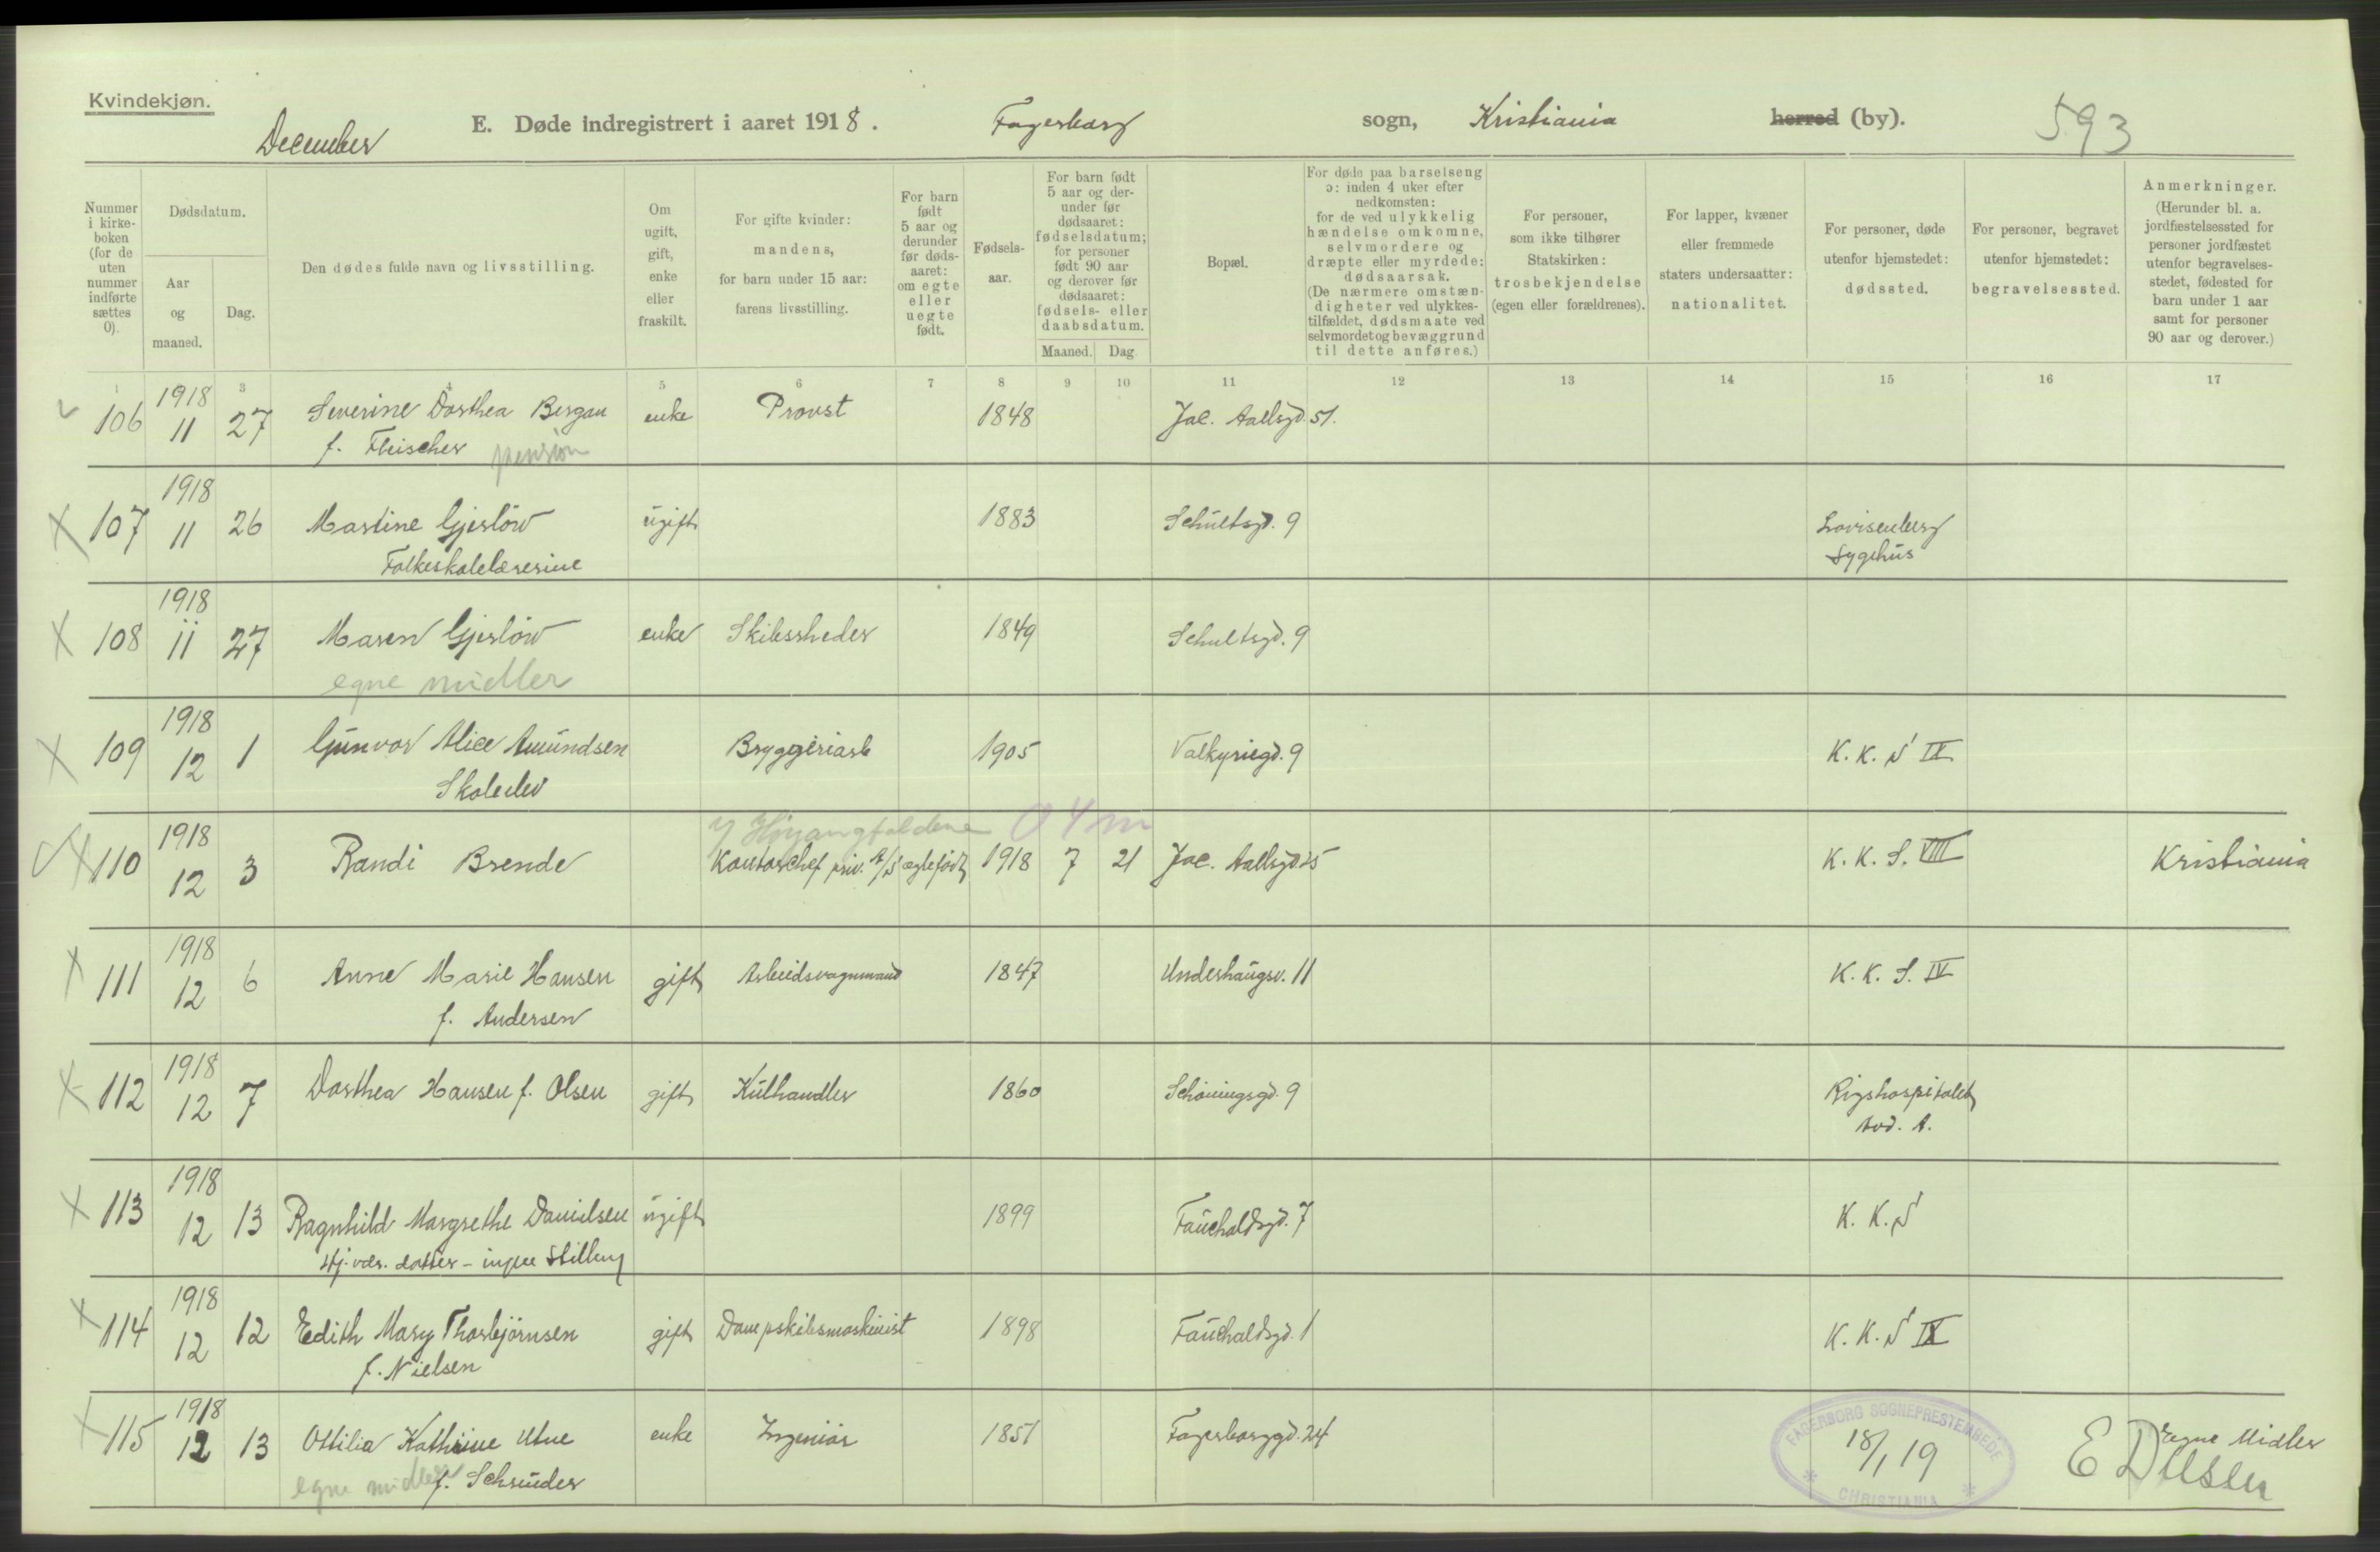 Kvindekjøn.
December
E. Døde indregistrert i aaret 1918.
Fagerborg sogn, Kristiania herred (by).
593
Nummer i kirkeboken (for de uten nummer indførte sættes 0).
Dødsdatum.
Aar og maaned.
Dag.
Den dødes fulde navn og livsstilling.
Om ugift, gift, enke eller fraskilt.
For gifte kvinder: mandens, for barn under 15 aar: farens livsstilling.
For barn født 5 aar og derunder før dødsaaret: om egte eller uegte født.
Fødselsaar.
For barn født 5 aar og derunder før dødsaaret: fødselsdatum; for personer født 90 aar og derover før dødsaaret: fødsels- eller daabsdatum.
Maaned. Dag
Bopæl.
For døde paa barselseng ɔ: inden 4 uker efter nedkomsten: for de ved ulykkelig hændelse omkomne, selvmordere og dræpte eller myrdede: dødsaarsak. (De nærmere omstændigheter ved ulykkestilfældet, dødsmaate ved selvmordet og bevæggrund til dette anføres.)
For personer, som ikke tilhører Statskirken: trosbekjendelse (egen eller forældrenes).
For lapper, kvæner eller fremmede staters undersaatter: nationalitet.
For personer, døde utenfor hjemstedet: dødssted.
For personer, begravet utenfor hjemstedet: begravelsessted.
Anmerkninger. (Herunder bl. a. jordfæstelsessted for personer jordfæstet utenfor begravelsesstedet, fødested for barn under 1 aar samt for personer 90 aar og derover.)
1 3 4 5 6 7 8 9 10 11 12 13 14 15 16 17
106 1918 11 27 Severine Dorthea Bergan enke Provst 1848 Jac. Aallsgd. 51.
f. Fleischer pension
107 1918 11 26 Martine Gjerlöw ugift 1883 Schultsgd. 9 Lovisenberg
Folkeskolelærerine Sygehus
108 1918 11 27 Maren Gjerlöw enke Skibsrheder 1849 Schultsgd. 9
egne midler
109 1918 12 1 Gunvor Alice Amundsen Bryggeriarb 1905 Valkyriegd. 9 K. K. S IX
Skoleelev
v/ Höyangfaldene 0 4 m
110 1918 12 3 Randi Brende Kontorchef priv. A/S ægtefödt 1918 7 21 Jac. Aallsgd 25 K. K. S. VIII Kristiania
111 1918 12 6 Anne Marie Hansen gift Arbeidsvognmand 1847 Underhaugsv. 11 K. K. S. IV
f. Andersen
112 1918 12 7 Dorthea Hansen f. Olsen gift Kulhandler 1860 Schöningsgd. 9 Rigshospitalet
Avd. A.
113 1918 12 13 Ragnhild Margrethe Danielsen ugift 1899 Fauchaldsgd. 7 K. K. S
Hj. vær. datter - ingen Stilling
114 1918 12 12 Edith Mary Thorbjörnsen gift Dampskibsmaskinist 1898 Fauchaldsgd. 1 K. K. S IX
f. Nielsen
115 1918 12 13 Ottilia Kathrine Utne enke Ingeniör 1851 Fagerborggd. 24 Egne Midler
egne midler f. Schrøder
FAGERBORG SOGNEPRESTEMBEDE
18/1 19
* CHRISTIANIA *